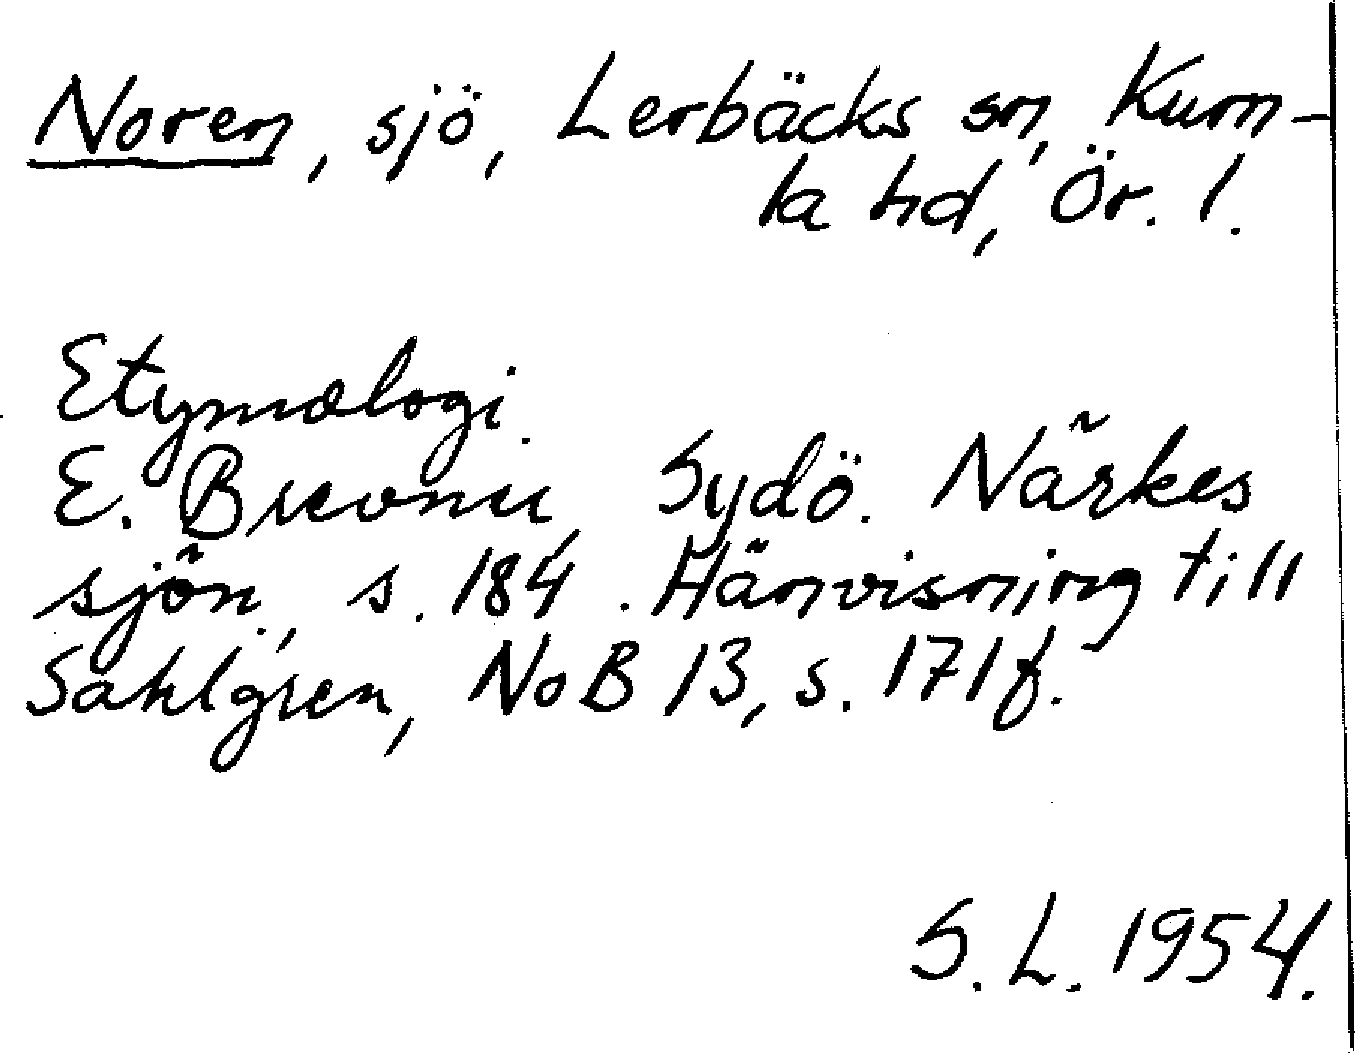 Noren, sjö, Lerbäcks sn, Kum-
la hd, Ör. l.
Etymologi.
E. Brevner, Sydö. Närkes
sjön., s. 184. Hänvisning till
Sahlgren, NoB 13, s. 171f.
S. L. 1954.